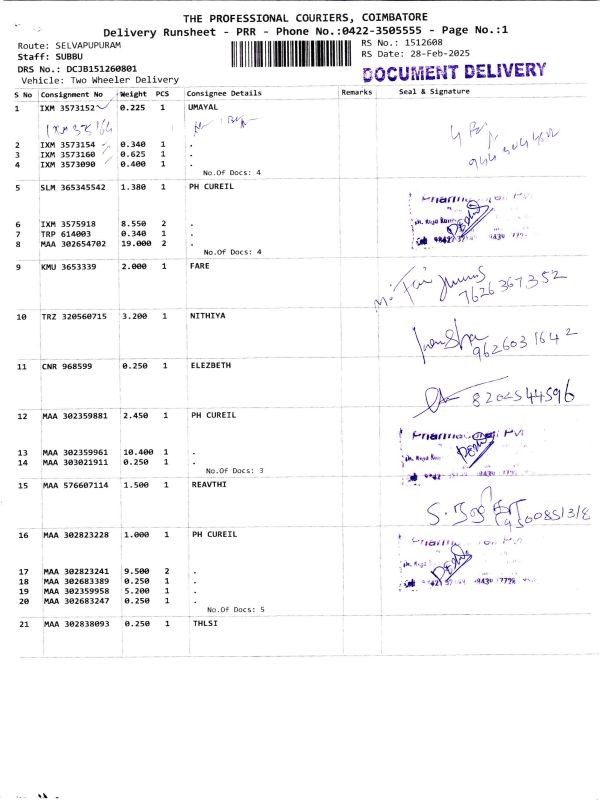 THE PROFESSIONAL COURIERS, COIMBATORE
Delivery Runsheet - PRR - Phone No.:0422-3505555 - Page No.:1
Route: SELVAPUPURAM
RS No.: 1512608
Staff: SUBBU
RS Date: 28-Feb-2025
DRS No.: DCJB151260801
DOCUMENT DELIVERY
Vehicle: Two Wheeler Delivery
S No Consignment No Weight PCS Consignee Details Remarks Seal & Signature
1 IXM 3573152 0.225 1 UMAYAL
2 IXM 3573154 0.340 1 .
3 IXM 3573160 0.625 1 .
4 IXM 3573090 0.400 1 .
No.Of Docs: 4
5 SLM 365345542 1.380 1 PH CUREIL
6 IXM 3575918 8.550 2 .
7 TRP 614003 0.340 1 .
8 MAA 302654702 19.000 2 .
No.Of Docs: 4
9 KMU 3653339 2.000 1 FARE
7626367352
10 TRZ 320560715 3.200 1 NITHIYA
9626031642
11 CNR 968599 0.250 1 ELEZBETH
8202544596
12 MAA 302359881 2.450 1 PH CUREIL
13 MAA 302359961 10.400 1 .
14 MAA 303021911 0.250 1 .
No.Of Docs: 3
15 MAA 576607114 1.500 1 REAVTHI
16 MAA 302823228 1.000 1 PH CUREIL
17 MAA 302823241 9.500 2 .
18 MAA 302683389 0.250 1 .
19 MAA 302359958 5.200 1 .
20 MAA 302683247 0.250 1 .
No.Of Docs: 5
21 MAA 302838093 0.250 1 THLSI